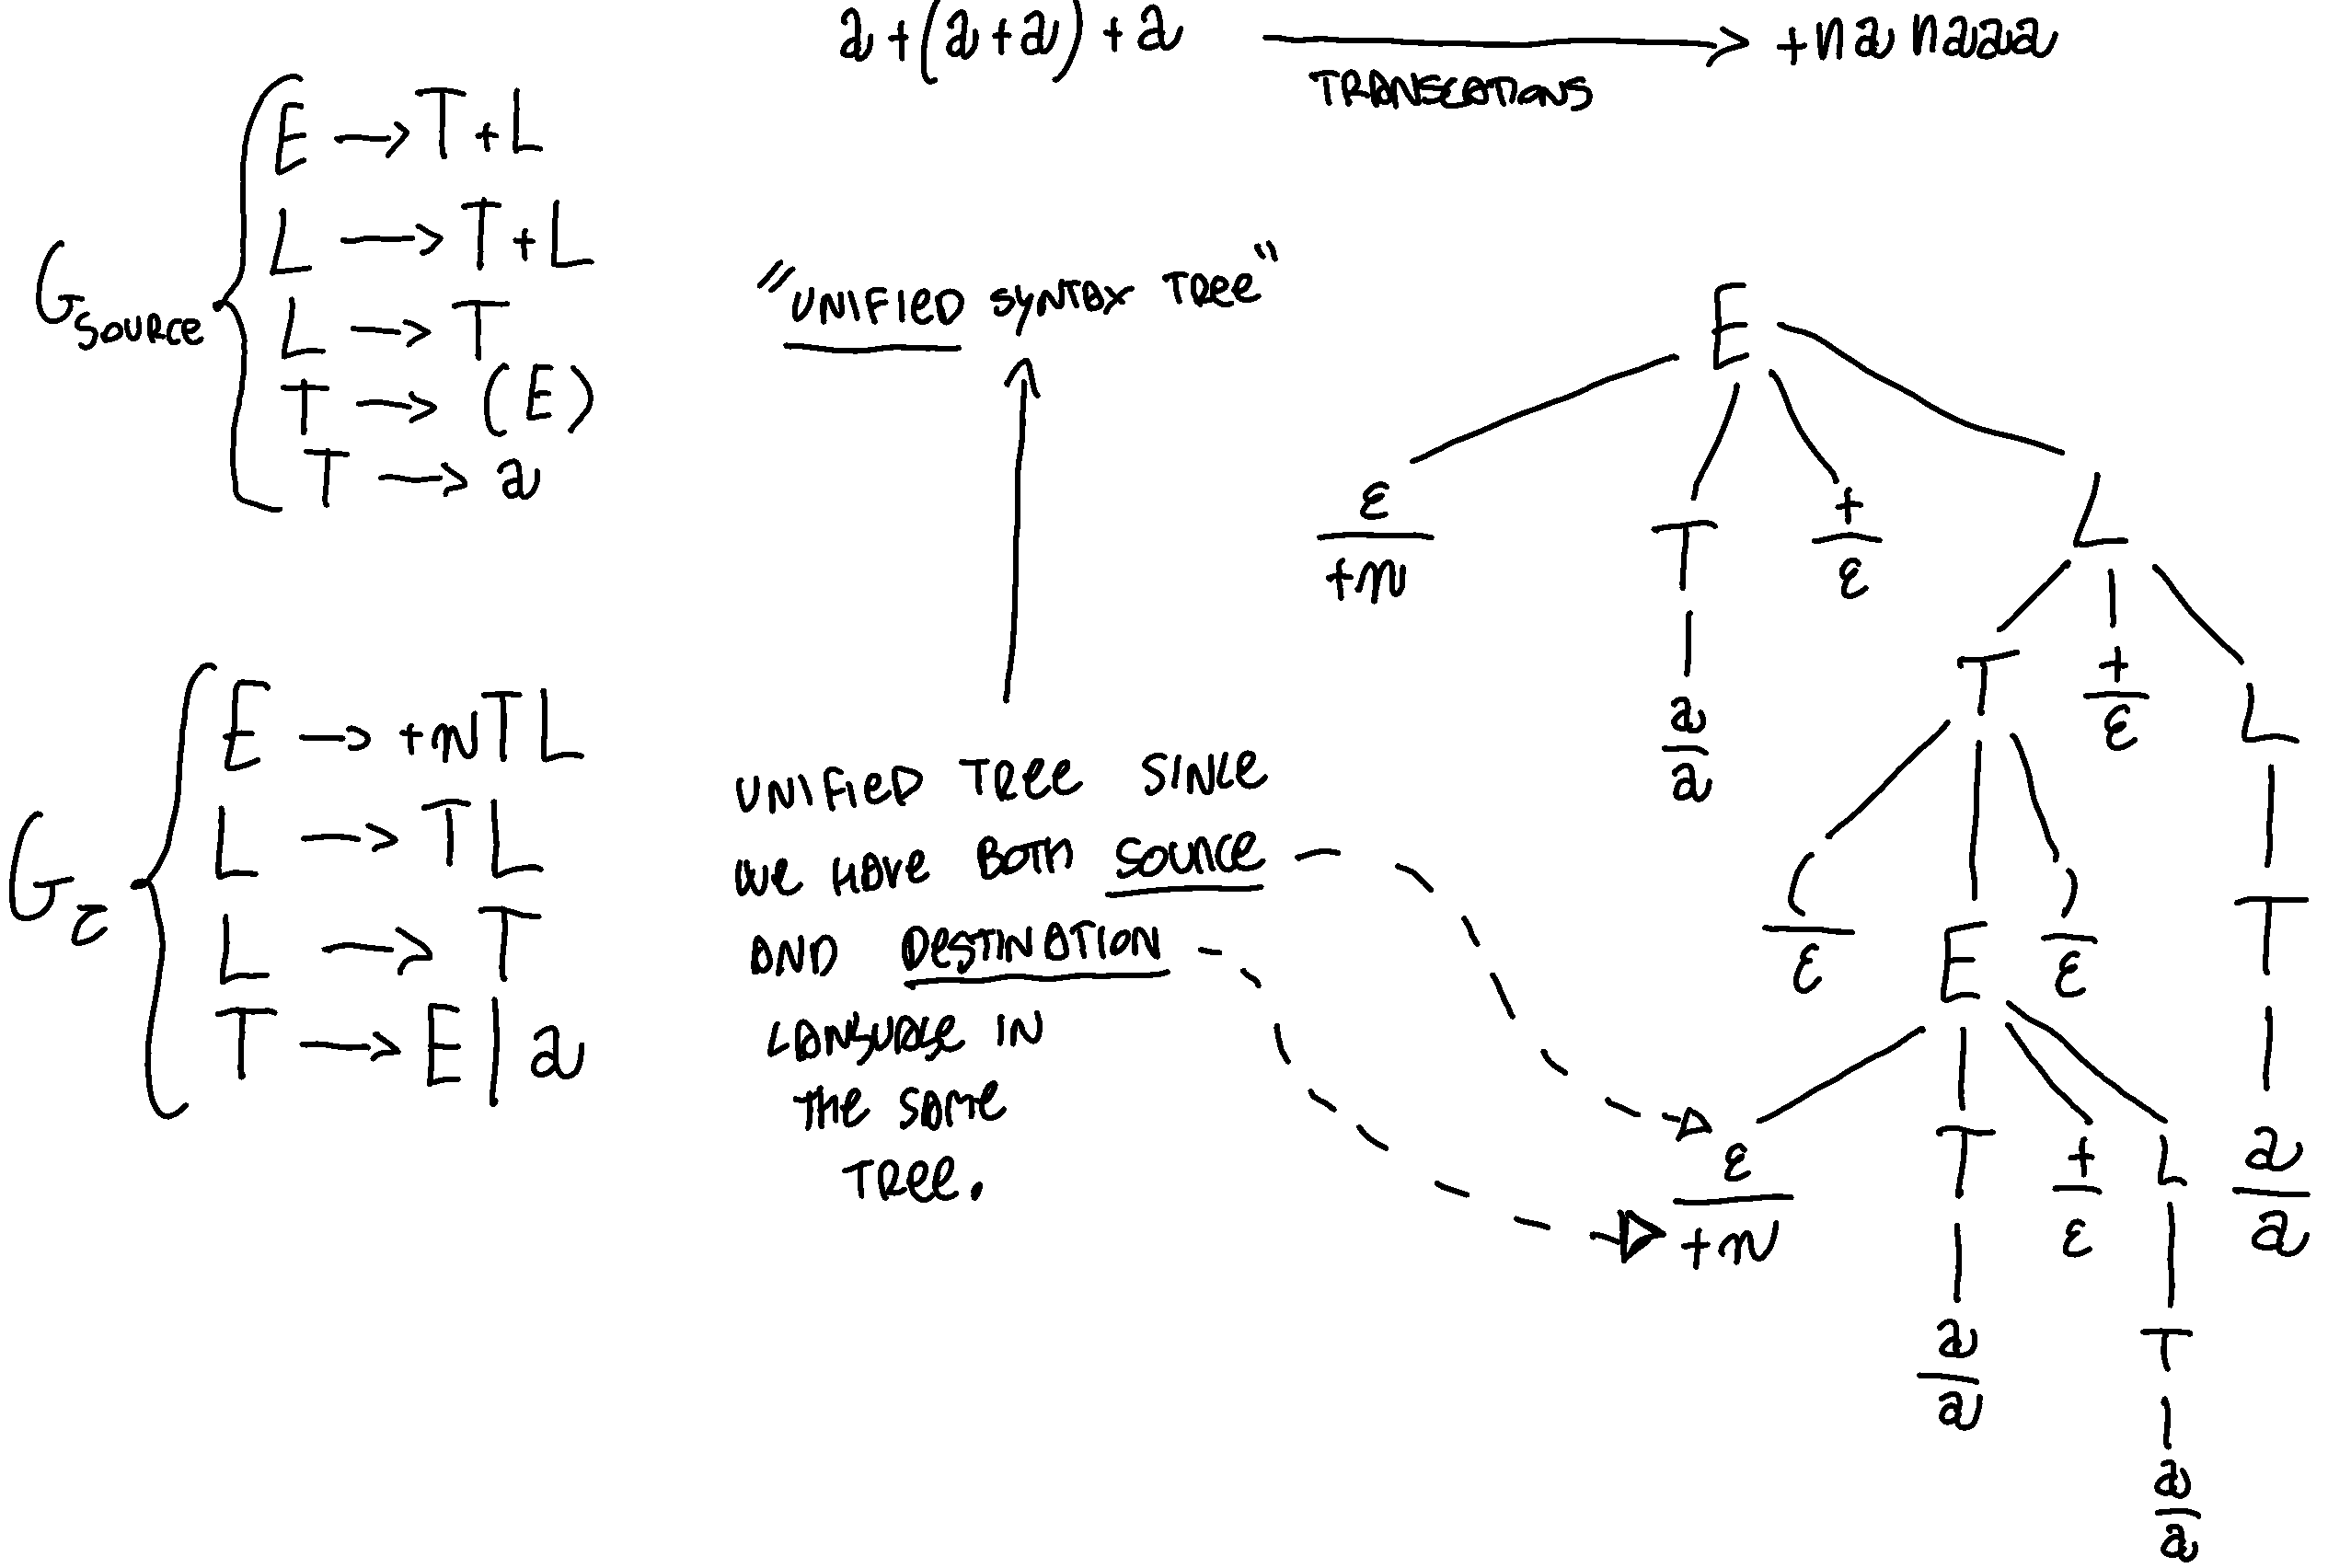 a+(a+a)+a ⟶ +na naaa
TRANSLATIONS
G SOURCE
E → T+L
L → T+L
L → T
T → (E)
T → a
"UNIFIED SYNTAX TREE"
G τ
E → +nTL
L → TL
L → T
T → E | a
UNIFIED TREE SINCE
WE HAVE BOTH SOURCE
AND DESTINATION
LANGUAGE IN
THE SAME
TREE.
E
ε/+n T +/ε L
a/a T +/ε L
(/ε E )/ε T
ε/+n T +/ε L a/a
a/a T
a/a